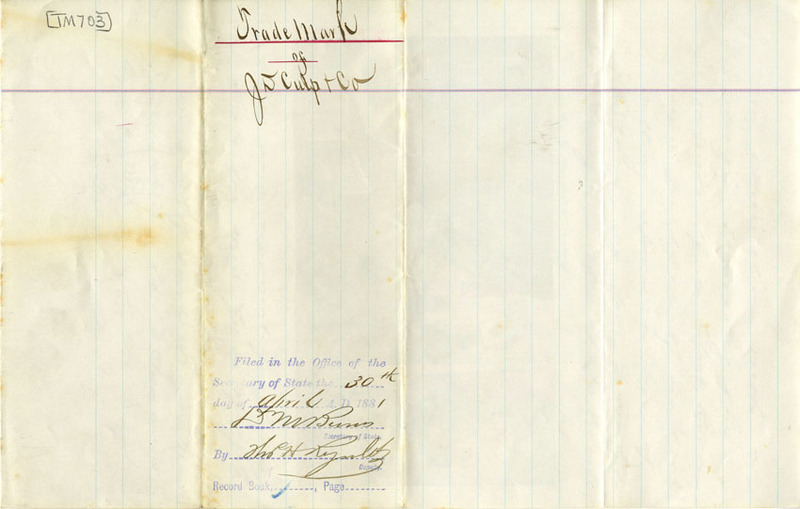 [TM703]
Trade Mark
of
J D Culp & Co
Filed in the Office of the
Secretary of State the 30th
day of April A.D. 1881
D M Burns
Secretary of State.
By Thos H Reynolds
Deputy.
Record Book, , Page